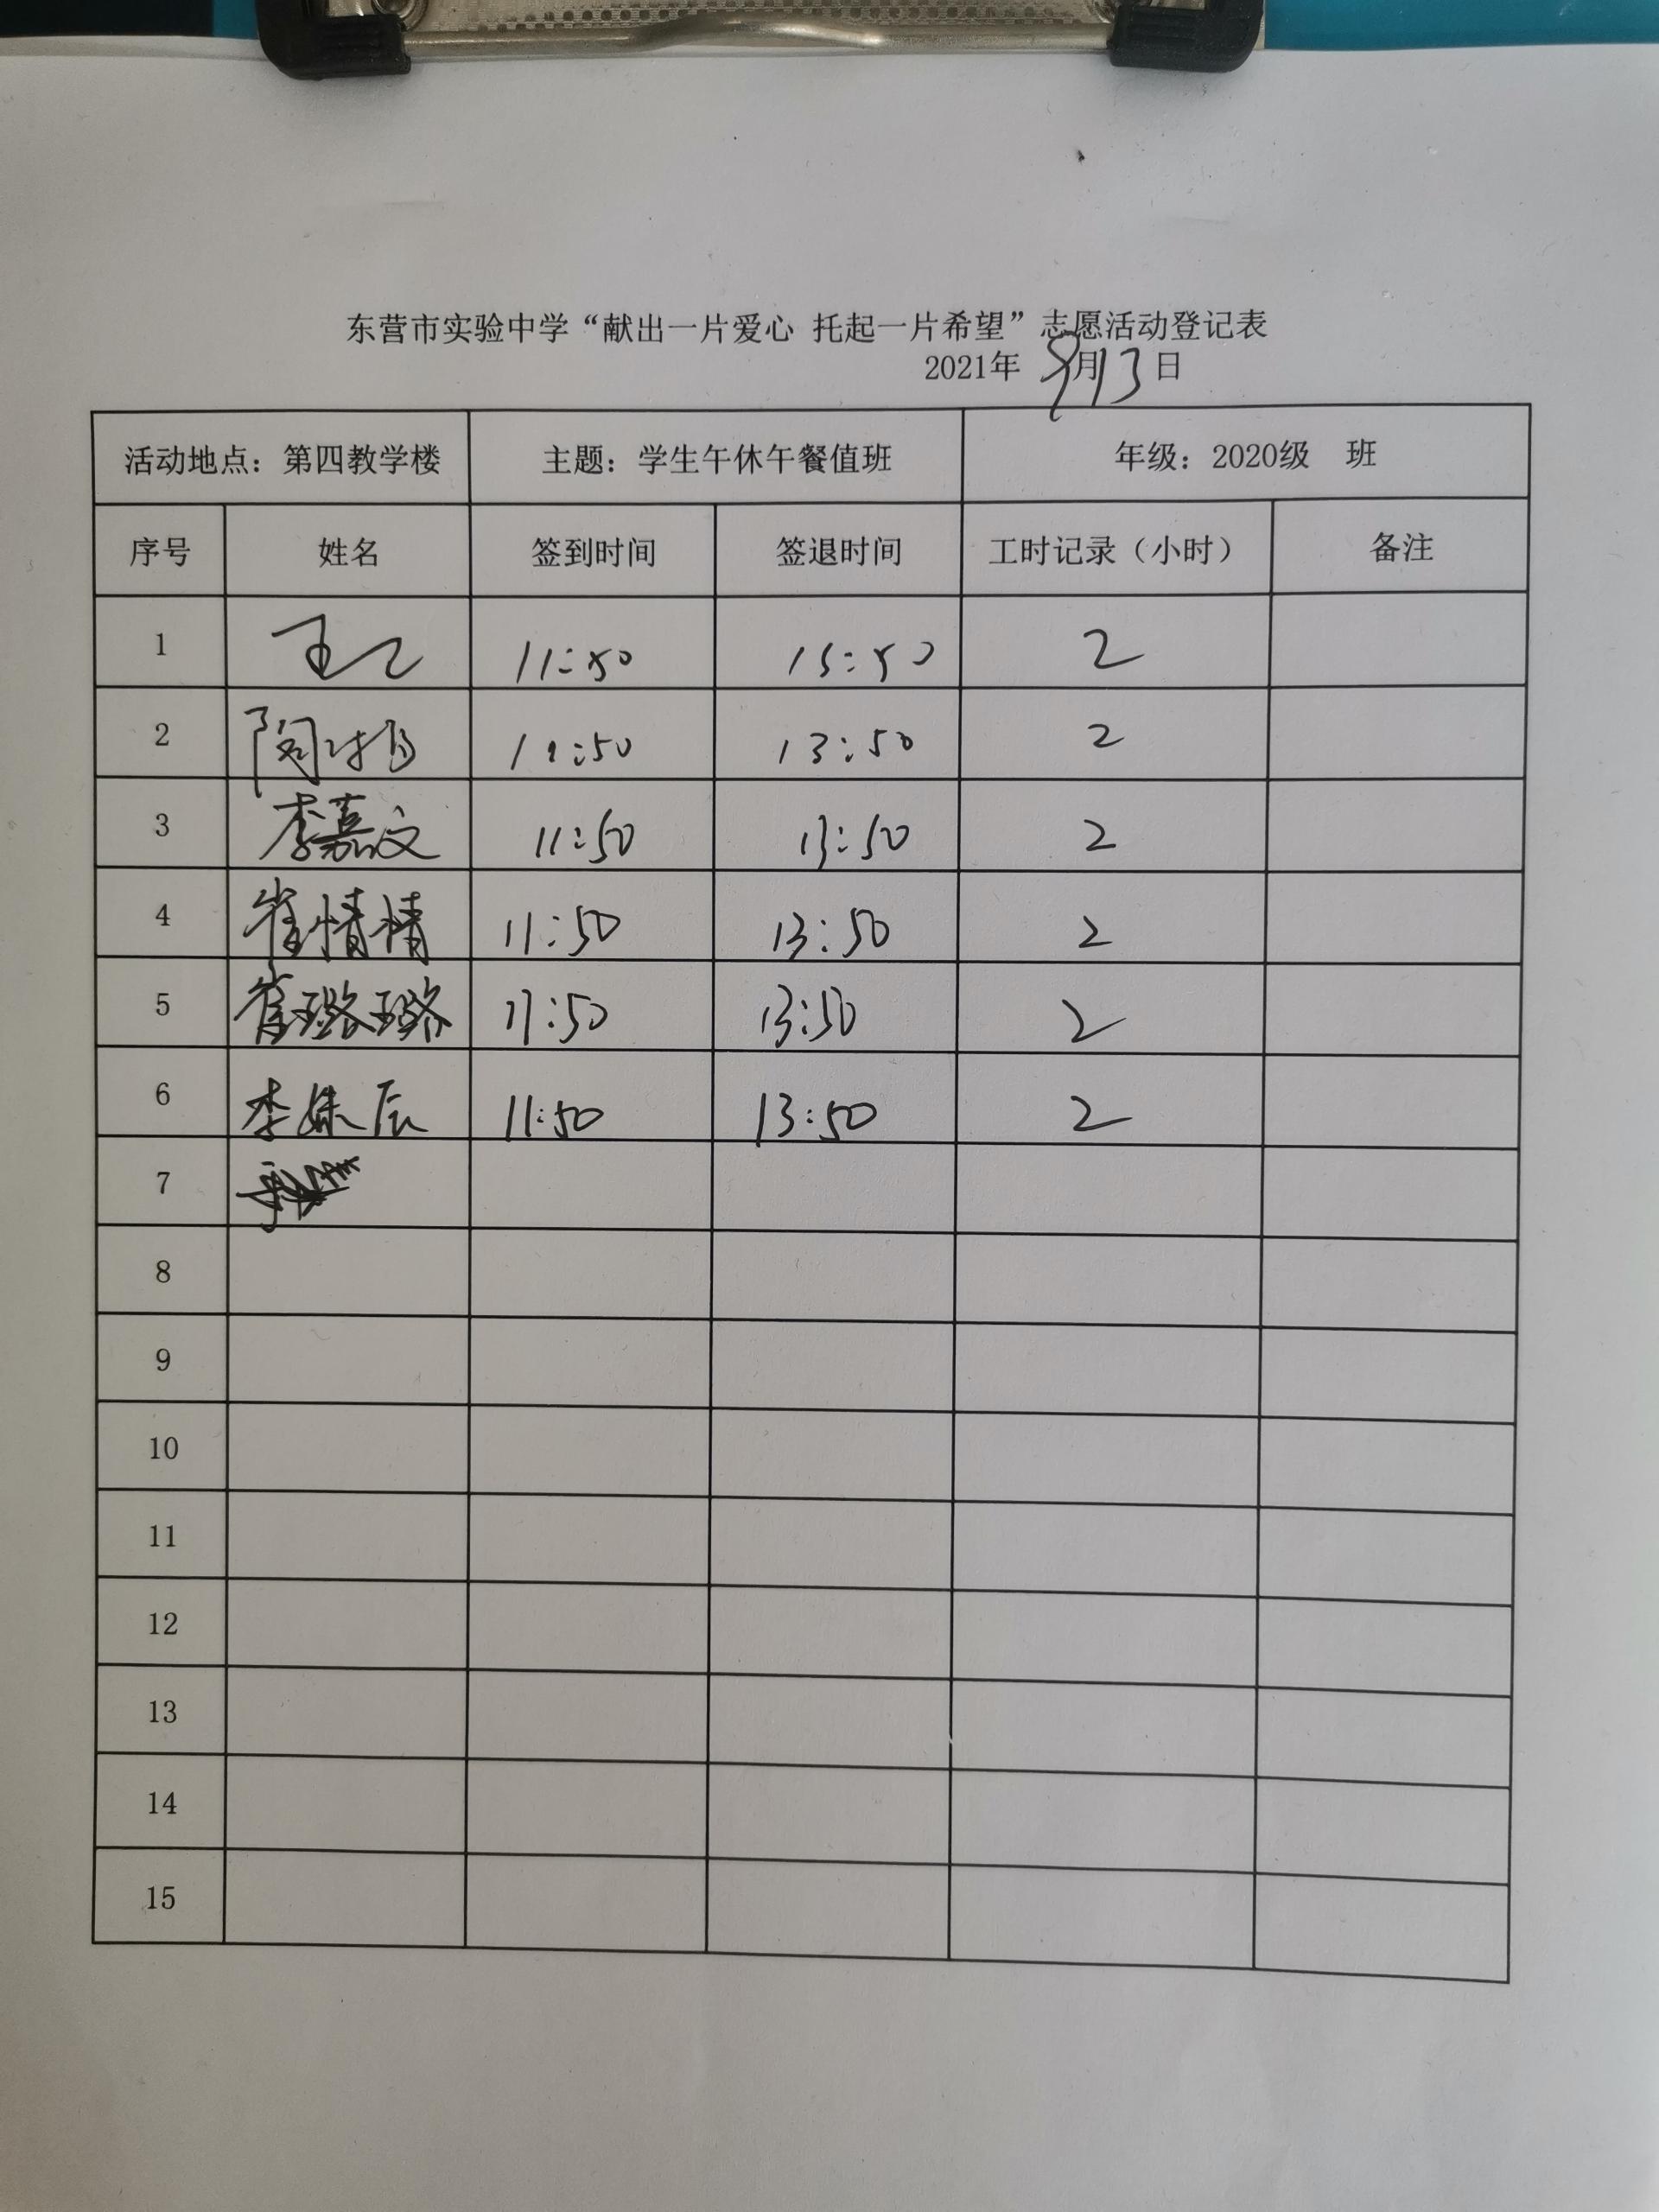 东营市实验中学“献出一片爱心 托起一片希望”志愿活动登记表
2021年 9月13日
活动地点：第四教学楼 主题：学生午休午餐值班 年级：2020级 班
序号 姓名 签到时间 签退时间 工时记录（小时） 备注
1 11:50 13:50 2
2 11:50 13:50 2
3 李嘉文 11:50 13:50 2
4 崔情情 11:50 13:50 2
5 崔璐璐 11:50 13:50 2
6 李姝辰 11:50 13:50 2
7
8
9
10
11
12
13
14
15